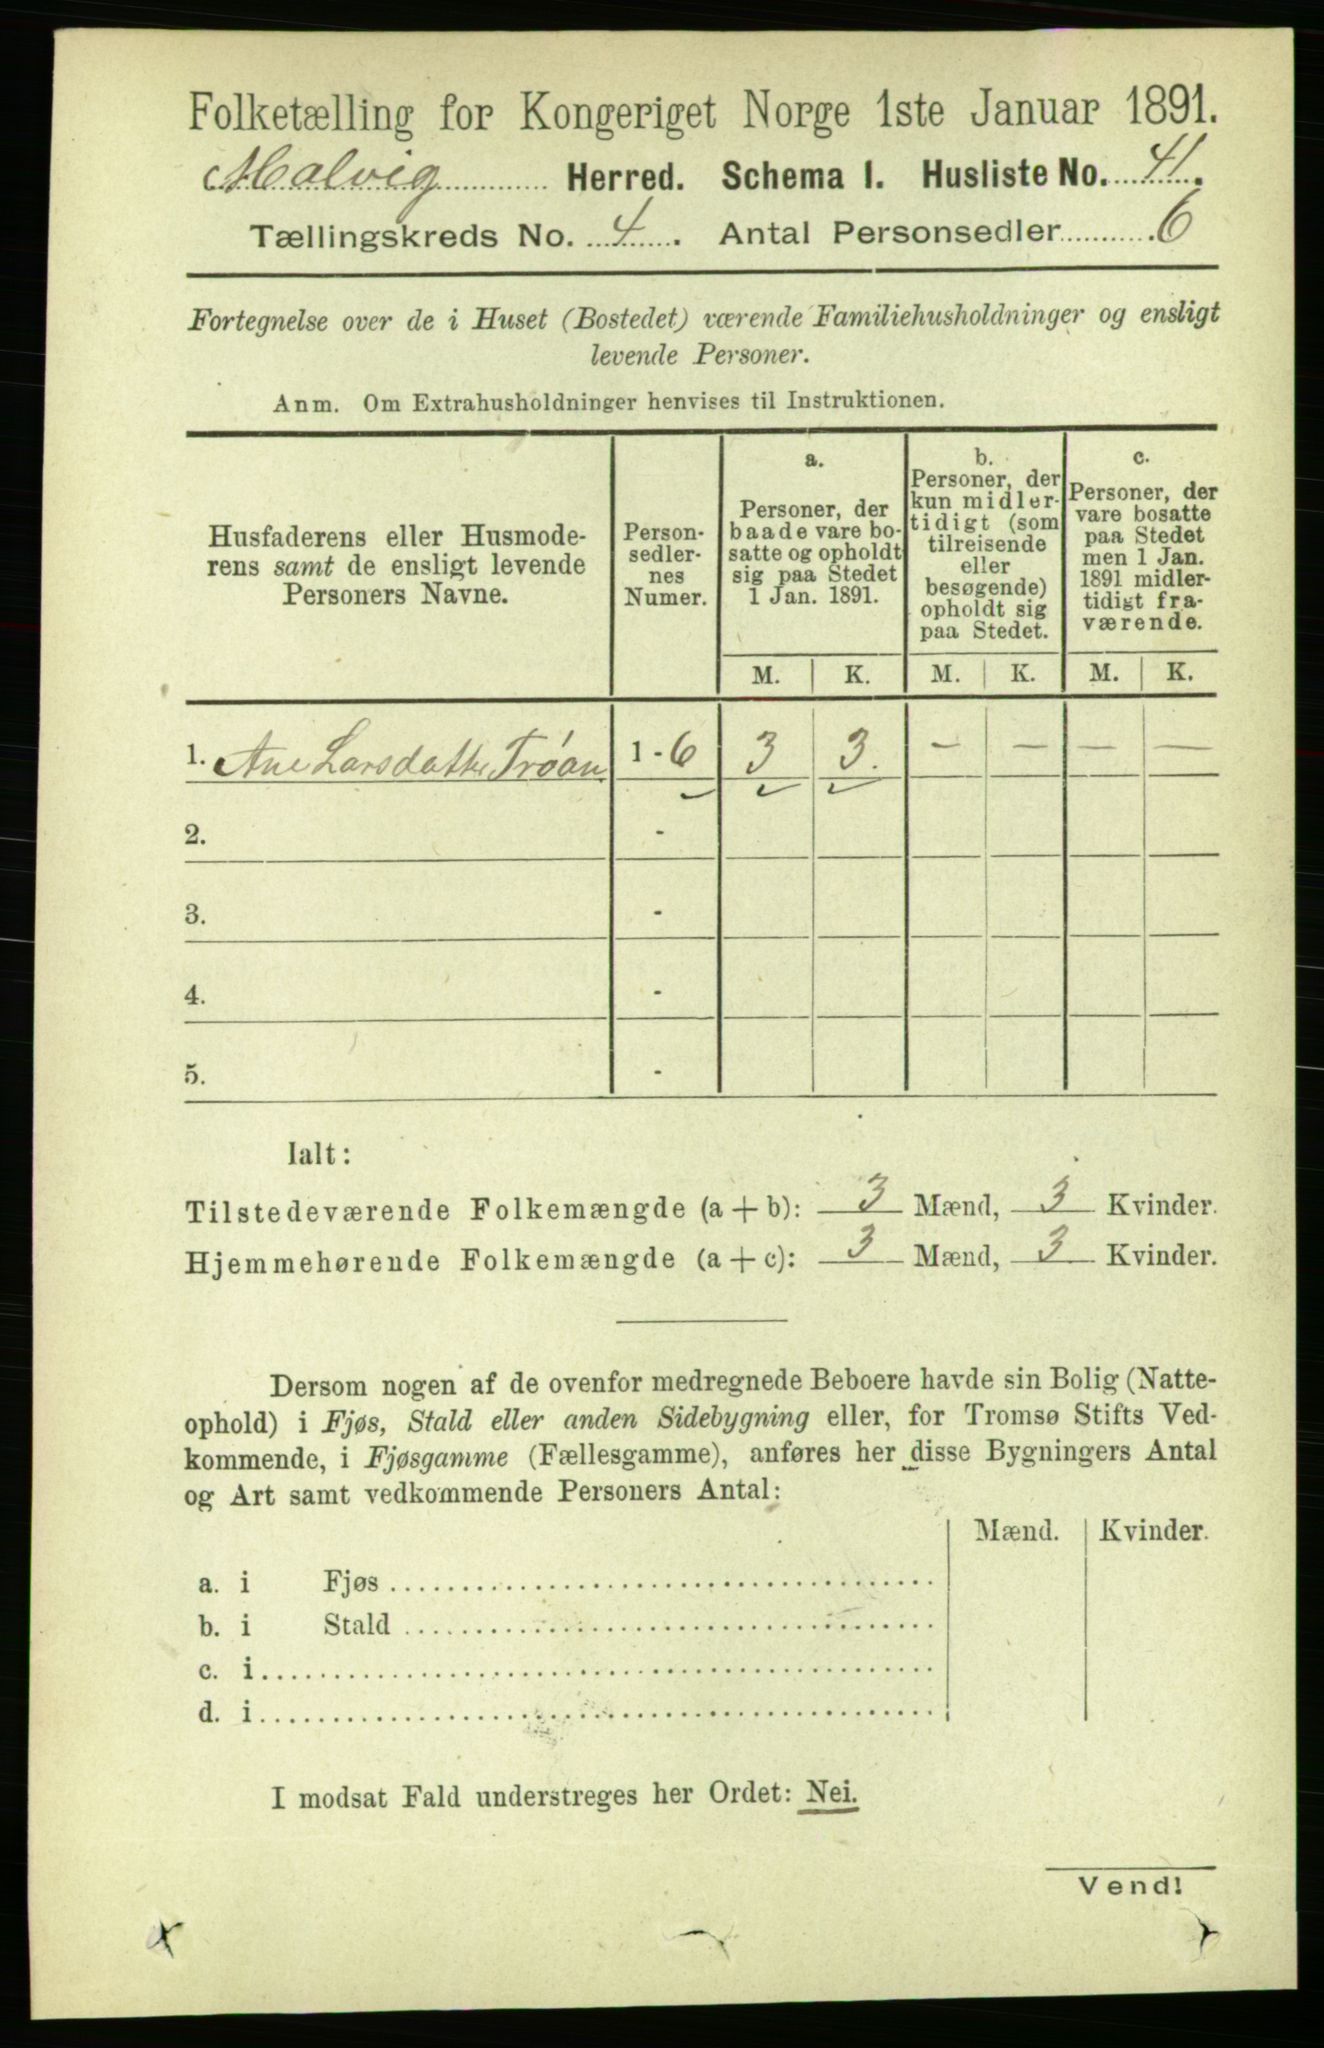 Folketælling for Kongeriget Norge 1ste Januar 1891.
Malvig Herred. Schema 1. Husliste No. 41.
Tællingskreds No. 4. Antal Personsedler 6
Fortegnelse over de i Huset (Bostedet) værende Familiehusholdninger og ensligt
levende Personer.
Anm. Om Extrahusholdninger henvises til Instruktionen.
Husfaderens eller Husmode-
rens samt de ensligt levende
Personers Navne.
Person-
sedler-
nes
Numer.
a.
Personer, der
baade vare bo-
satte og opholdt
sig paa Stedet
1 Jan. 1891.
b.
Personer, der
kun midler-
tidigt (som
tilreisende
eller
besøgende)
opholdt sig
paa Stedet.
c.
Personer, der
vare bosatte
paa Stedet
men 1 Jan.
1891 midler-
tidigt fra-
værende.
M. K. M. K. M. K.
1. Ane Larsdatter Trøan 1 - 6 3 3. — — — —
2. -
3. -
4. -
5. -
Ialt:
Tilstedeværende Folkemængde (a + b): 3 Mænd, 3 Kvinder.
Hjemmehørende Folkemængde (a + c): 3 Mænd, 3 Kvinder.
Dersom nogen af de ovenfor medregnede Beboere havde sin Bolig (Natte-
ophold) i Fjøs, Stald eller anden Sidebygning eller, for Tromsø Stifts Ved-
kommende, i Fjøsgamme (Fællesgamme), anføres her disse Bygningers Antal
og Art samt vedkommende Personers Antal:
Mænd. Kvinder.
a. i Fjøs
b. i Stald
c. i
d. i
I modsat Fald understreges her Ordet: Nei.
Vend!